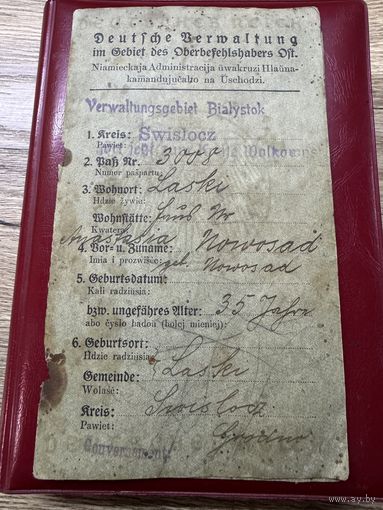 Deutsche Verwaltung
im Gebiet des Oberbefehlshabers Ost.
Niamieckaja Administracija ŭwakruzi Hłaŭna-
kamandujučaho na Uschodzi.
Verwaltungsgebiet Bialystok
1. Kreis: Swislocz
Pawiet:
2. Paß Nr. 3008
Numer pašpartu
3. Wohnort: Laski
Hdzie żywie:
Wohnstätte: Haus Nr
Kwatera
Anastasia Nowosad
4. Vor- u. Zuname:
Imia i prozwišče: geb. Nowosad
5. Geburtsdatum:
Kali radziŭsia:
bzw. ungefähres Alter: 35 Jahre
abo čysło hadoŭ (bolej mieniej):
6. Geburtsort:
Hdzie radziŭsia: Laski
Gemeinde:
Wołaść:
Kreis: Swislocz
Pawiet: Grodno
Gouvernement:
www.ay.by